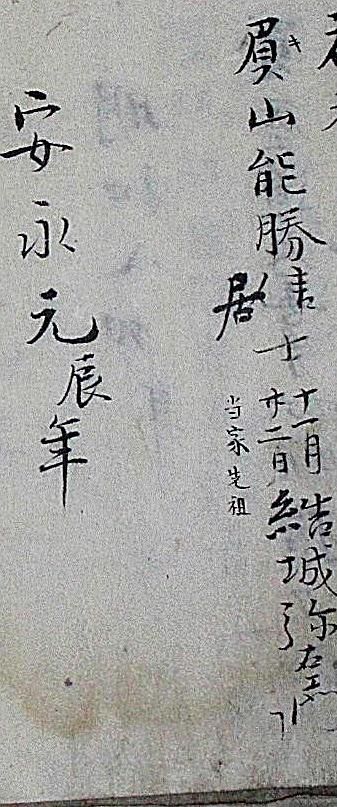 眉山能勝書士
キ
居
十一月
廿二日
結城弥左衛門
当家先祖
安永元辰年